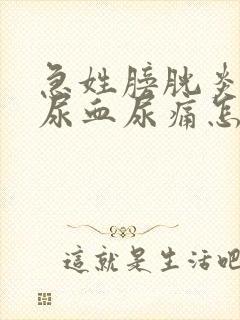 急姓膀胱炎
尿血尿痛怎
這就是生活吧